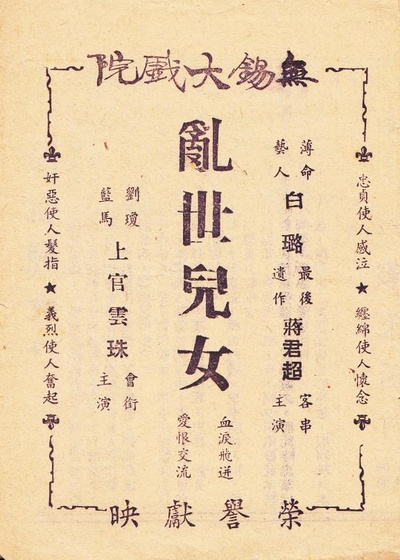 無錫大戲院
忠貞使人感泣 ★ 纏綿使人懷念
薄命
藝人
白璐
最後
遺作
蔣君超
客串
主演
亂世兒女
血淚飛迸
愛恨交流
劉瓊
藍馬
上官雲珠
會銜
主演
奸惡使人髮指 ★ 義烈使人奮起
榮譽獻映